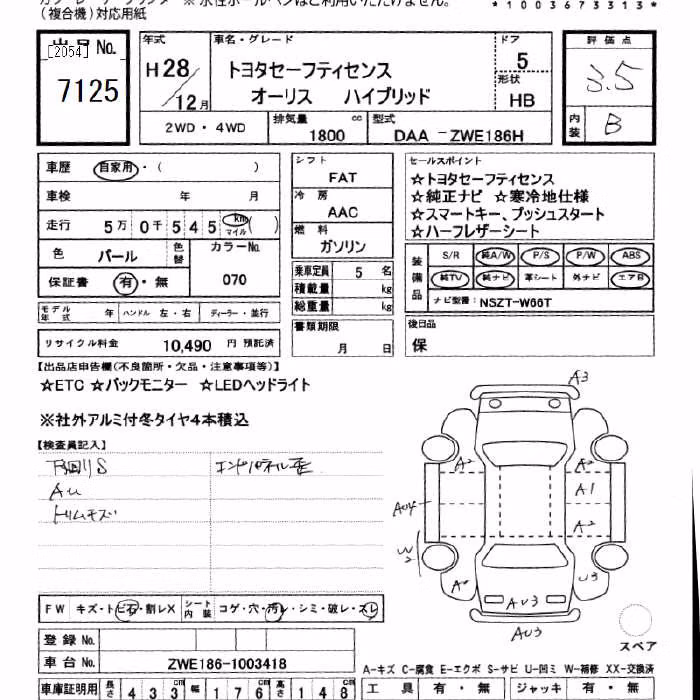 (複合機)対応用紙
*1003673313*
出品No.
[2054]
7125
年式
H28/12月
車名・グレード
トヨタセーフティセンス
オーリス ハイブリッド
ドア
5
形状
HB
評価点
3.5
内装
B
2WD・4WD
排気量
1800 cc
型式
DAA-ZWE186H
車歴 自家用・( )
車検 年 月
走行 5万0千545 km マイル ( )
色 パール
色替
カラーNo.
070
保証書 有・無
シフト
FAT
冷房
AAC
燃料
ガソリン
乗車定員 5 名
積載量 kg
総重量 kg
セールスポイント
☆トヨタセーフティセンス
☆純正ナビ ☆寒冷地仕様
☆スマートキー、プッシュスタート
☆ハーフレザーシート
装備品
S/R 純A/W P/S P/W ABS
純TV 純ナビ 革シート 外ナビ エアB
ナビ型番: NSZT-W66T
モデル年式 年
ハンドル 左・右
ディーラー・並行
リサイクル料金 10,490 円 預託済
書類期限
月 日
後日品
保
【出品店申告欄(不良箇所・欠品・注意事項等)】
☆ETC ☆バックモニター ☆LEDヘッドライト
※社外アルミ付冬タイヤ4本積込
【検査員記入】
下回りS
エンドパネル歪
AU
トリムキズ
A3
A2
A2
A1
AU4
A2
W2
U3
AU3
AU3
スペア
FW キズ・トビ石・割レX
シート内装 コゲ・穴・汚レ・シミ・破レ・スレ
登録No.
車台No. ZWE186-1003418
A-キズ C-腐食 E-エクボ S-サビ U-凹ミ W-補修 XX-交換済
車庫証明用 長さ 433cm 幅 176cm 高さ 148cm
工具 有・無 ジャッキ 有・無